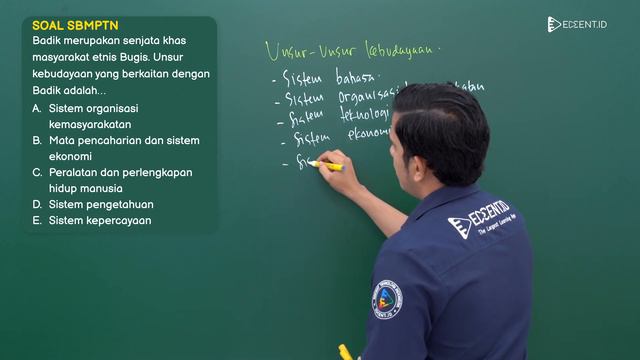 SOAL SBMPTN
Badik merupakan senjata khas
masyarakat etnis Bugis. Unsur
kebudayaan yang berkaitan dengan
Badik adalah...
A. Sistem organisasi
kemasyarakatan
B. Mata pencaharian dan sistem
ekonomi
C. Peralatan dan perlengkapan
hidup manusia
D. Sistem pengetahuan
E. Sistem kepercayaan
EDCENT.ID
Unsur-Unsur Kebudayaan.
- Sistem bahasa.
- Sistem organisasi
- Sistem teknologi
- Sistem ekonomi
- Sis
EDCENT.ID
The Largest Learning App